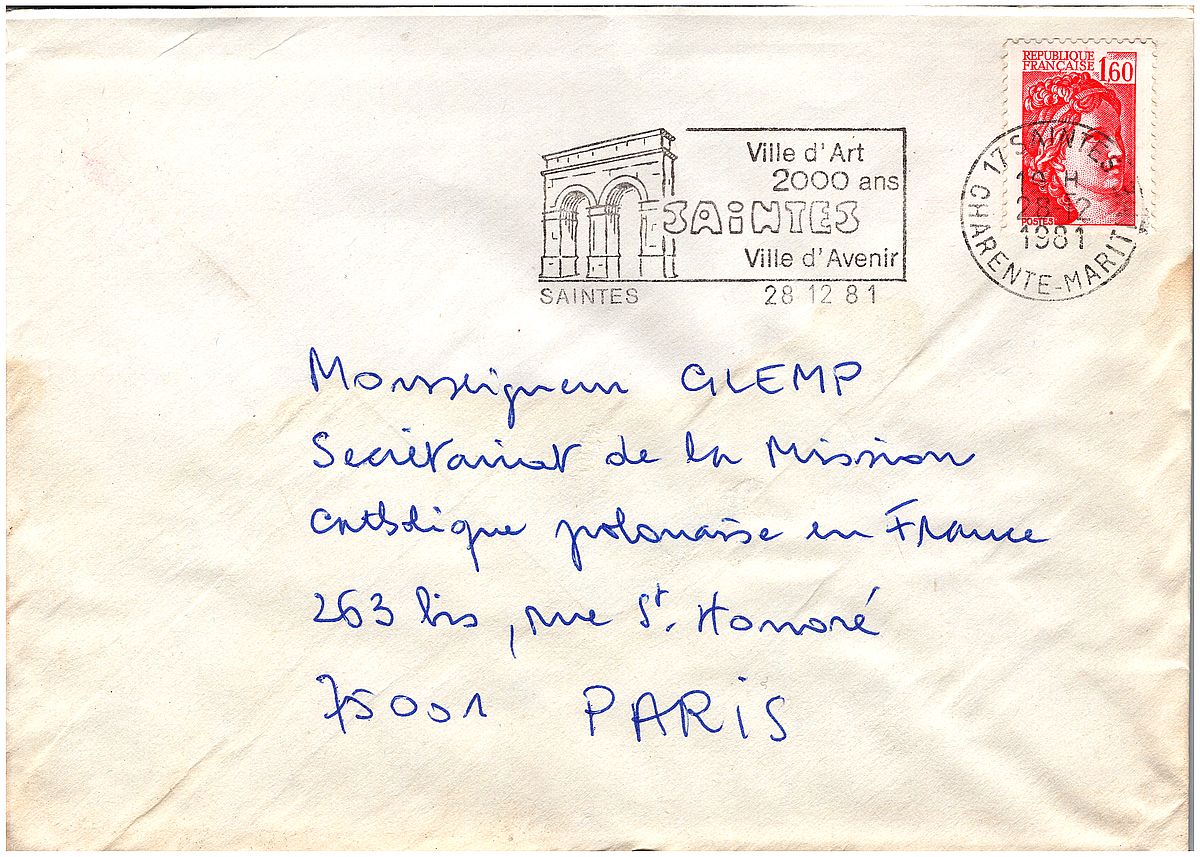 REPUBLIQUE
FRANÇAISE 1,60
POSTES
17 SAINTES
28-12
1981
CHARENTE-MARIT
Ville d'Art
2000 ans
SAiNTES
Ville d'Avenir
SAINTES 28 12 81
Monseigneur GLEMP
Secrétariat de la Mission
Catholique polonaise en France
263 bis, rue St. Honoré
75001 PARiS